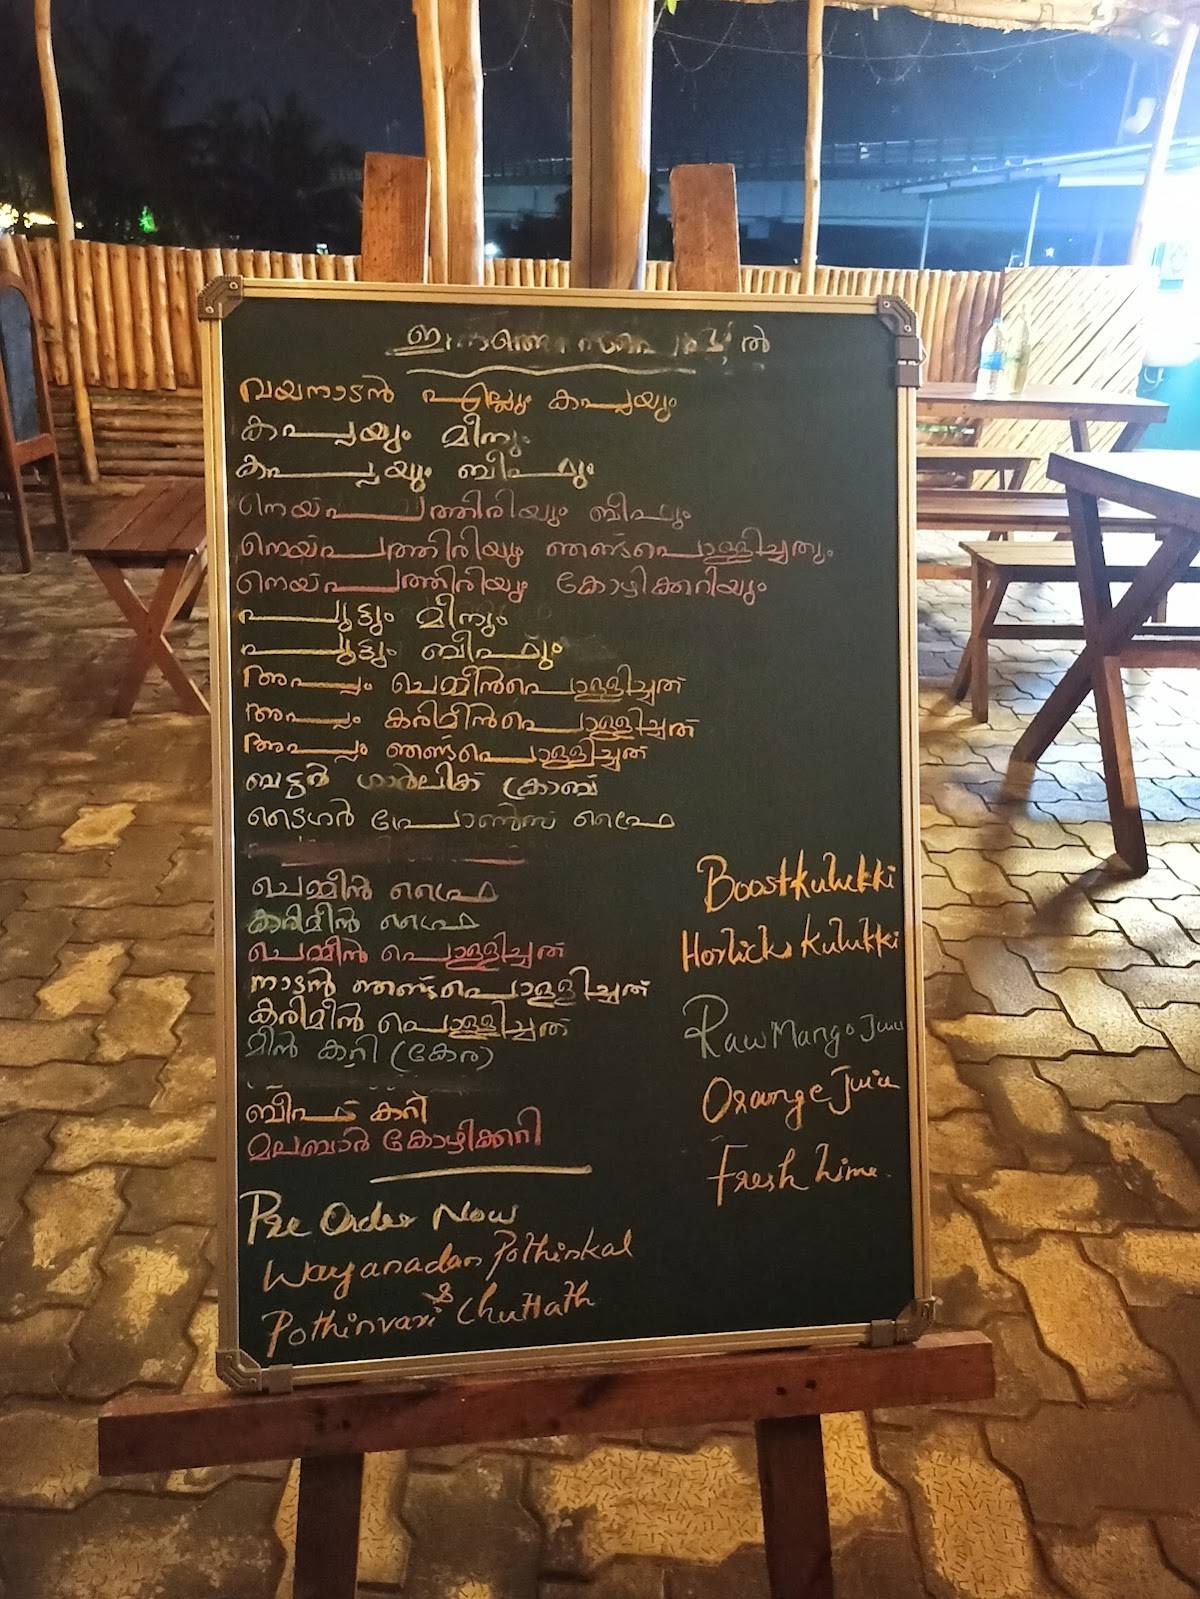 ഇന്നത്തെ സ്പെഷ്യൽ
വയനാടൻ എല്ലും കപ്പയും
കപ്പയും മീനും
കപ്പയും ബീഫും
നെയ്പത്തിരിയും ബീഫും
നെയ്പത്തിരിയും ഞണ്ടപൊള്ളിച്ചതും
നെയ്പത്തിരിയും കോഴിക്കറിയും
പുട്ടും മീനും
പുട്ടും ബീഫും
അപ്പം ചെമ്മീൻപൊള്ളിച്ചത്
അപ്പം കരിമീൻപൊള്ളിച്ചത്
അപ്പം ഞണ്ടപൊള്ളിച്ചത്
ബട്ടർ ഗാർലിക് ക്രാബ്
ടൈഗർ പ്രോൺസ് ഫ്രൈ
ചെമ്മീൻ ഫ്രൈ
കരിമീൻ ഫ്രൈ
ചെമ്മീൻ പൊള്ളിച്ചത്
നാടൻ ഞണ്ടപൊള്ളിച്ചത്
കരിമീൻ പൊള്ളിച്ചത്
മീൻ കറി (കേര)
ബീഫ് കറി
മലബാർ കോഴിക്കറി
Pre Order Now
Wayanadan Pothinkal
&
Pothinvari Chuttath
Boostkulukki
Horlicks Kulukki
Raw Mango Juice
Orange Juice
Fresh Lime